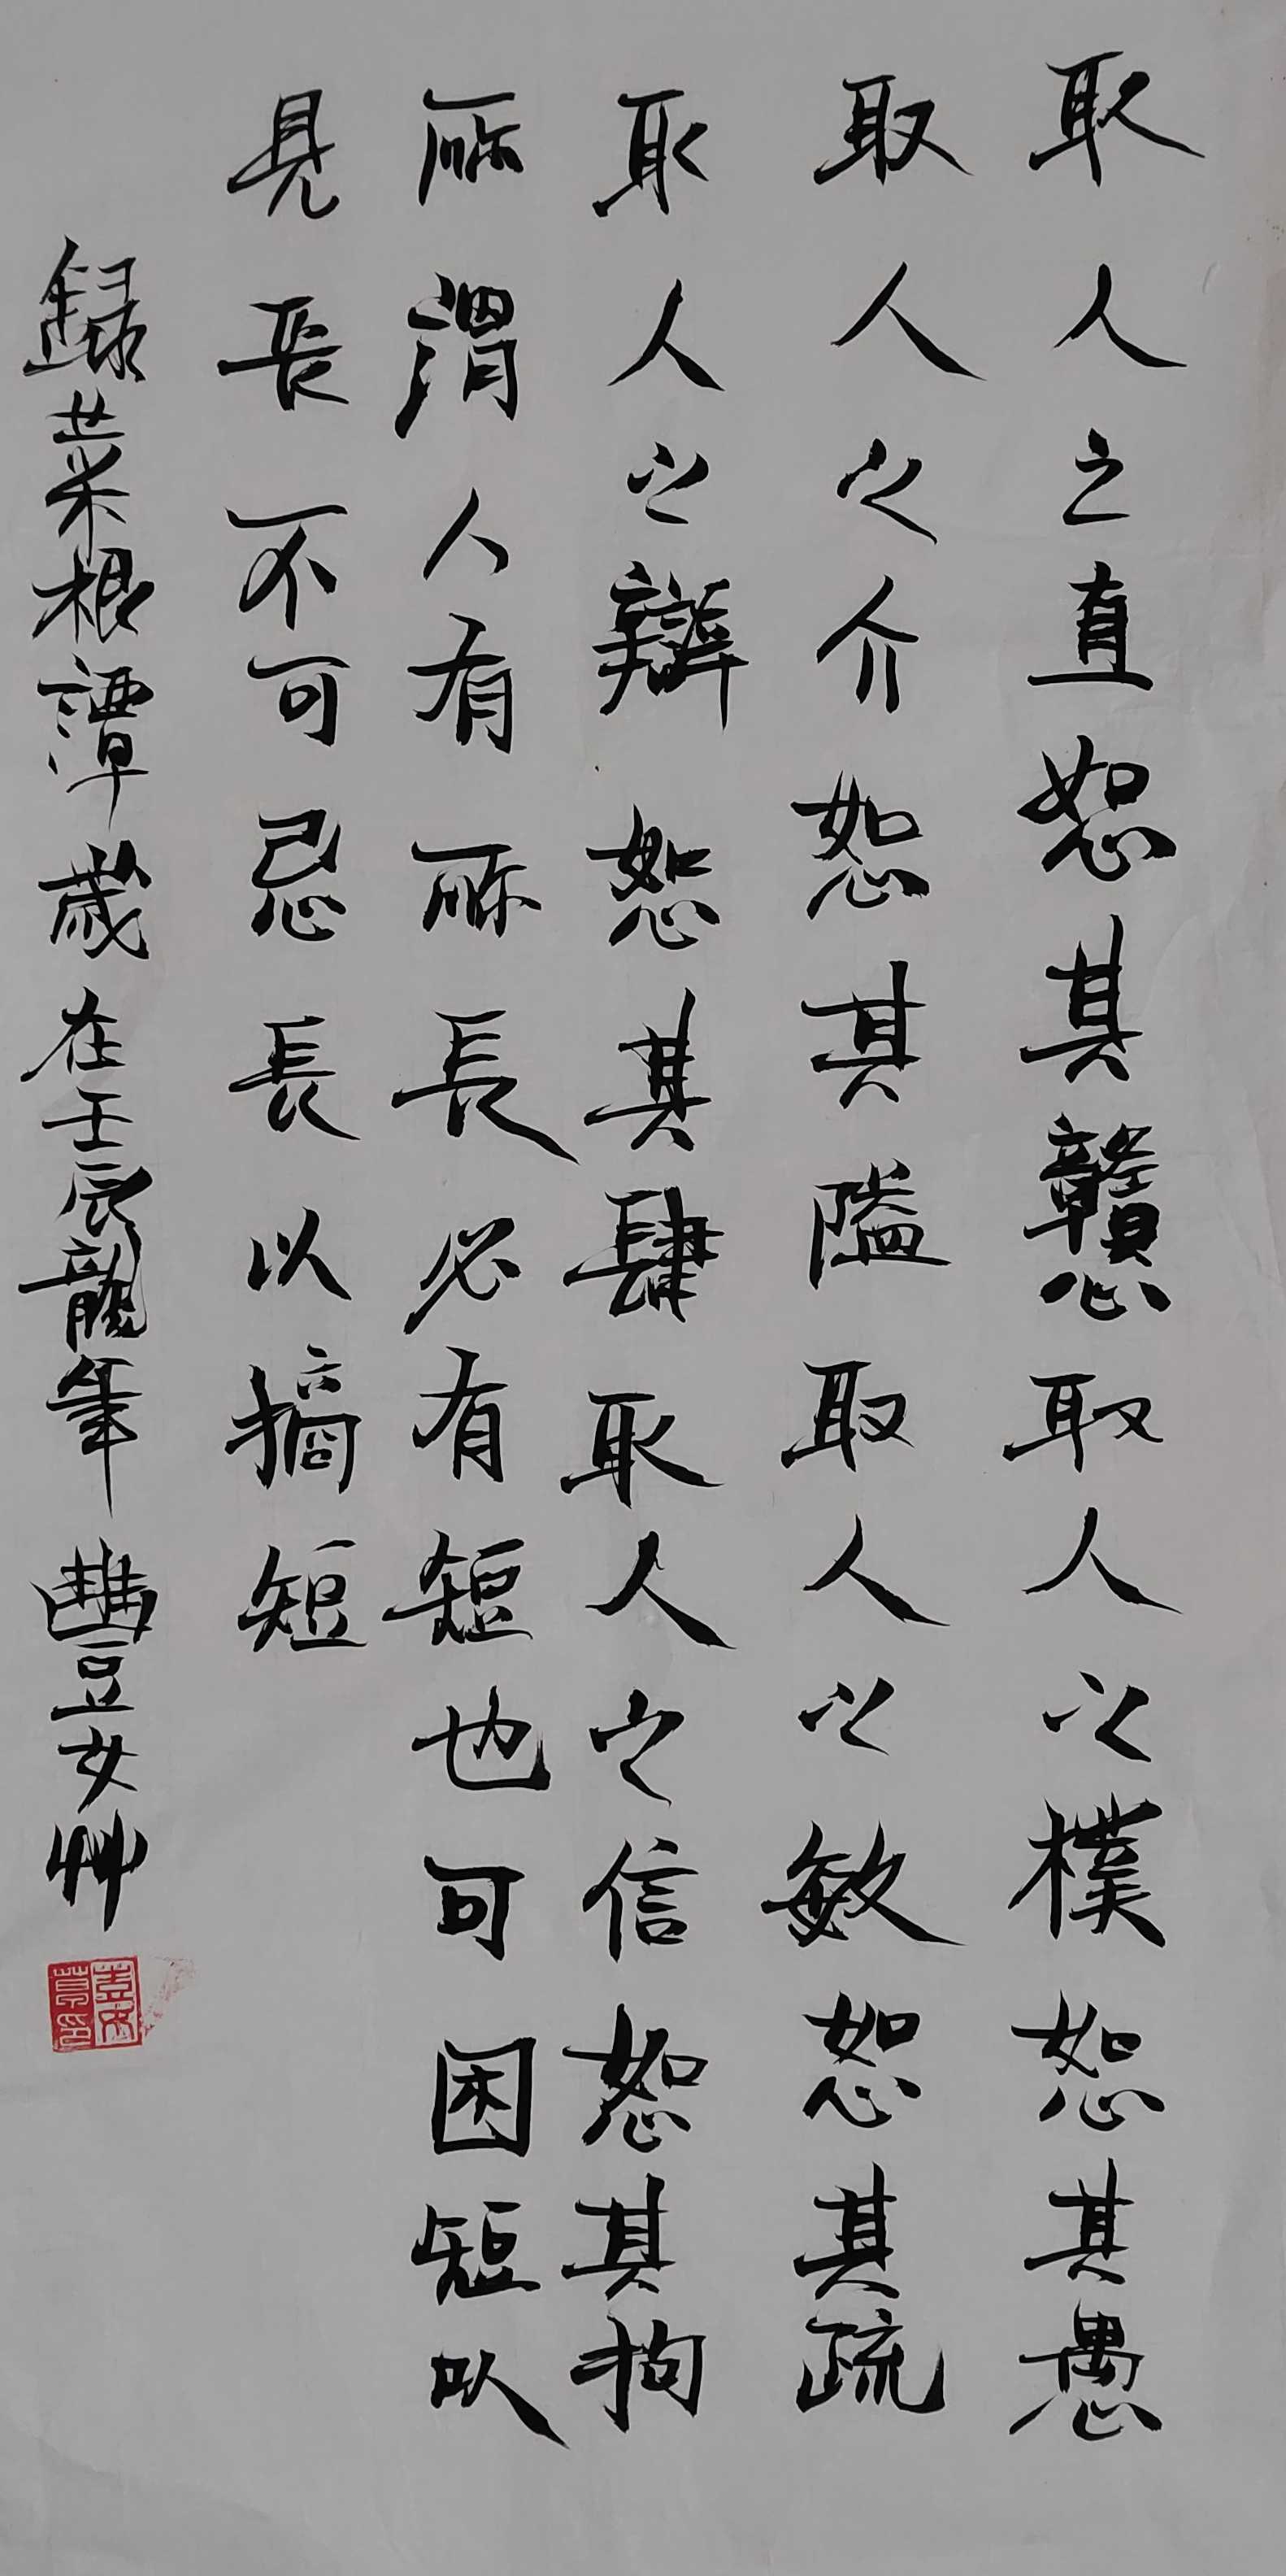 取人之直恕其戇取人之樸恕其愚
取人之介恕其隘取人之敏恕其疏
取人之辯恕其肆取人之信恕其拘
所謂人有所長必有短也可因短以
見長不可忌長以摘短
錄菜根譚歲在壬辰龍年豐豆女艸